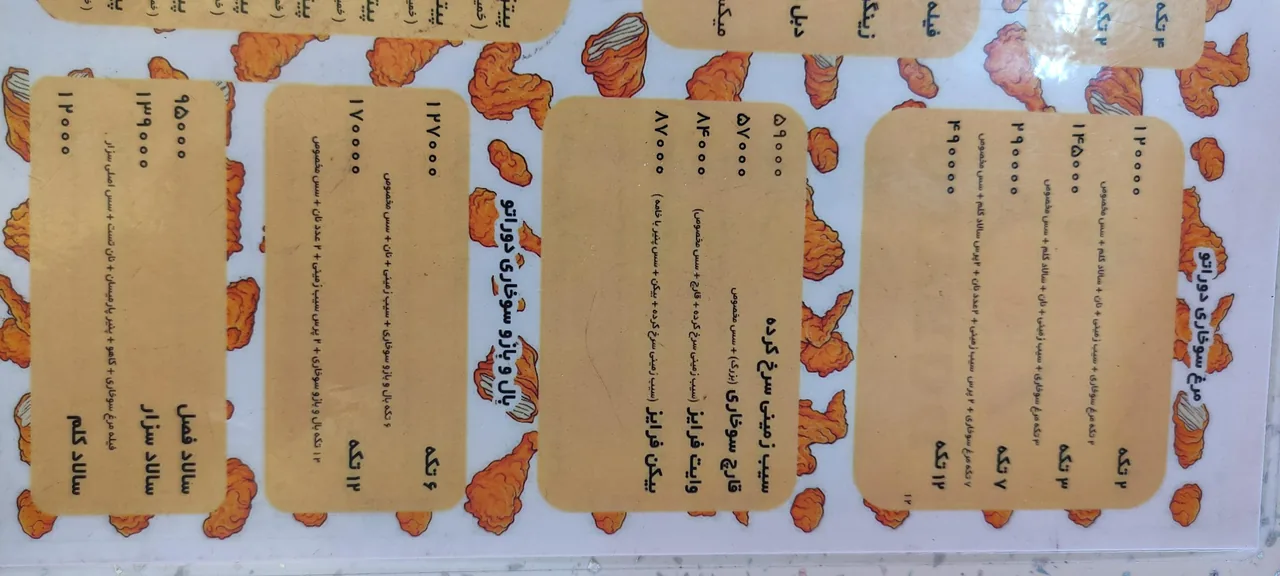 مرغ سوخاری دوراتو
۲ تکه ۱۲۰۰۰۰
۲ تکه مرغ سوخاری + سیب زمینی + نان + سالاد کلم + سس مخصوص
۳ تکه ۱۴۵۰۰۰
۳ تکه مرغ سوخاری + سیب زمینی + نان + سالاد کلم + سس مخصوص
۷ تکه ۲۹۰۰۰۰
۷ تکه مرغ سوخاری + ۲ پرس سیب زمینی + ۲ عدد نان + ۲ پرس سالاد کلم + سس مخصوص
۱۲ تکه ۴۹۰۰۰۰
۱۲
سیب زمینی سرخ کرده ۵۹۰۰۰
قارچ سوخاری (بزرگ) + سس مخصوص ۵۷۰۰۰
وایت فرایز (سیب زمینی سرخ کرده + قارچ + سس مخصوص) ۸۴۰۰۰
بیکن فرایز (سیب زمینی سرخ کرده + بیکن + سس پنیر یا خامه) ۸۷۰۰۰
بال و بازو سوخاری دوراتو
۶ تکه ۱۲۷۰۰۰
۶ تکه بال و بازو سوخاری + سیب زمینی + نان + سس مخصوص
۱۲ تکه ۱۷۰۰۰۰
۱۲ تکه بال و بازو سوخاری + ۲ پرس سیب زمینی + ۲ عدد نان + سس مخصوص
سالاد فصل ۹۵۰۰۰
سالاد سزار ۱۳۹۰۰۰
فیله مرغ سوخاری + کاهو + پنیر پارمیسان + نان تست + سس اصلی سزار
سالاد کلم ۱۲۰۰۰
۴ تکه
۲ تکه
فیله
دبل